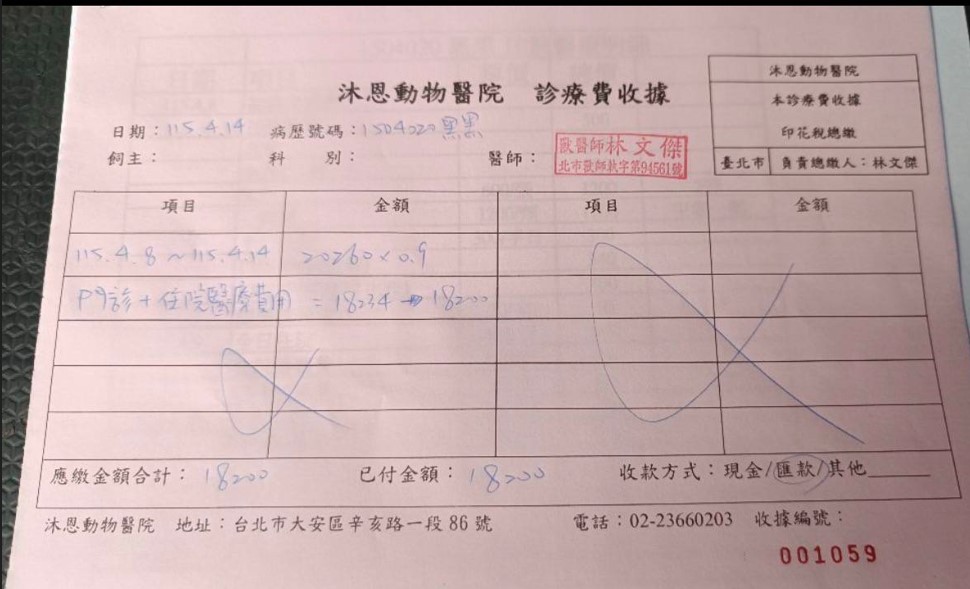 沐恩動物醫院 診療費收據
沐恩動物醫院
本診療費收據
印花稅總繳
臺北市 負責總繳人：林文傑
日期：115.4.14 病歷號碼：1504020黑黑
飼主： 科 別： 醫師：
獸醫師林文傑
北市獸師執字第94561號
項目 金額 項目 金額
115.4.8～115.4.14 20260×0.9
門診+住院醫療費用 =18234→18200
應繳金額合計：18200 已付金額：18200 收款方式：現金/匯款/其他
沐恩動物醫院 地址：台北市大安區辛亥路一段86號 電話：02-23660203 收據編號：
001059